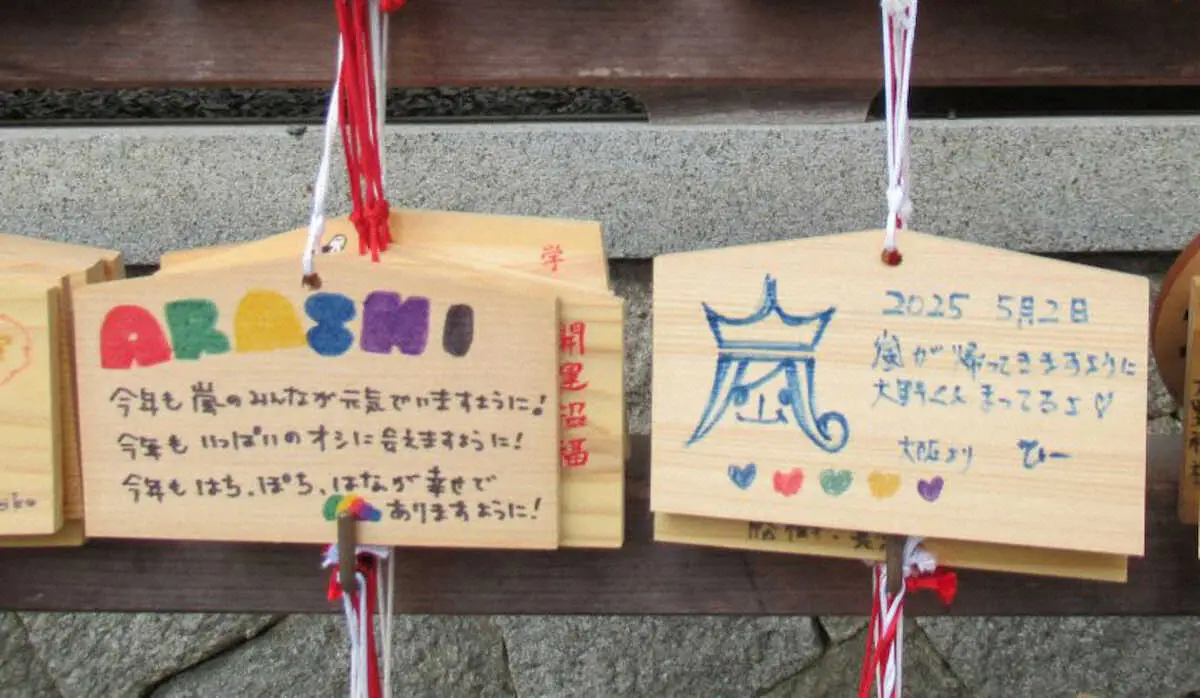 ARASHI
今年も嵐のみんなが元気でいますように!
今年もいっぱいのオシに会えますように!
今年もはち、ぽち、はなが幸せで
ありますように!
学
開運招福
嵐
2025 5月2日
嵐が帰ってきますように
大野くんまってるよ♡
大阪より ひー